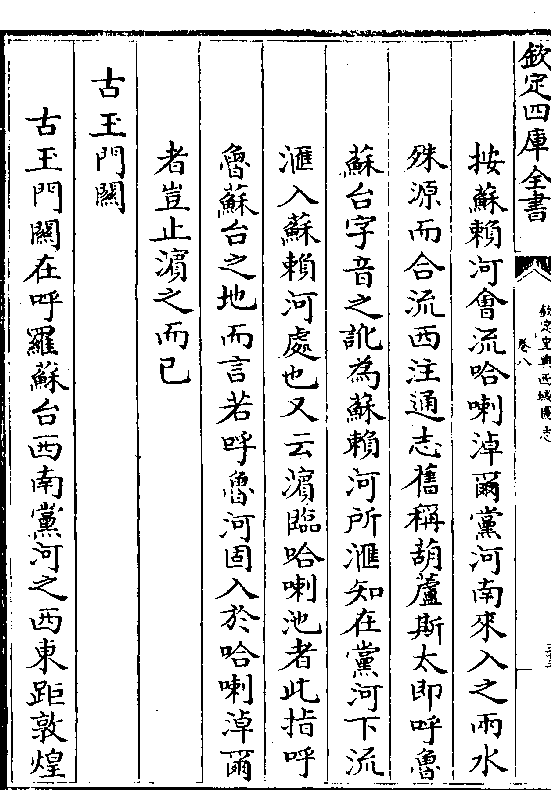 欽定四庫全書
欽定皇輿西域圖志
卷八
按蘇賴河會流哈喇淖爾黨河南來入之兩水
殊源而合流西注通志舊稱葫蘆斯太即呼魯
蘇台字音之訛為蘇賴河所滙知在黨河下流
滙入蘇賴河處也又云濵臨哈喇池者此指呼
魯蘇台之地而言若呼魯河固入於哈喇淖爾
者豈止濵之而已
古玉門關
古玉門關在呼羅蘇台西南黨河之西東距敦煌